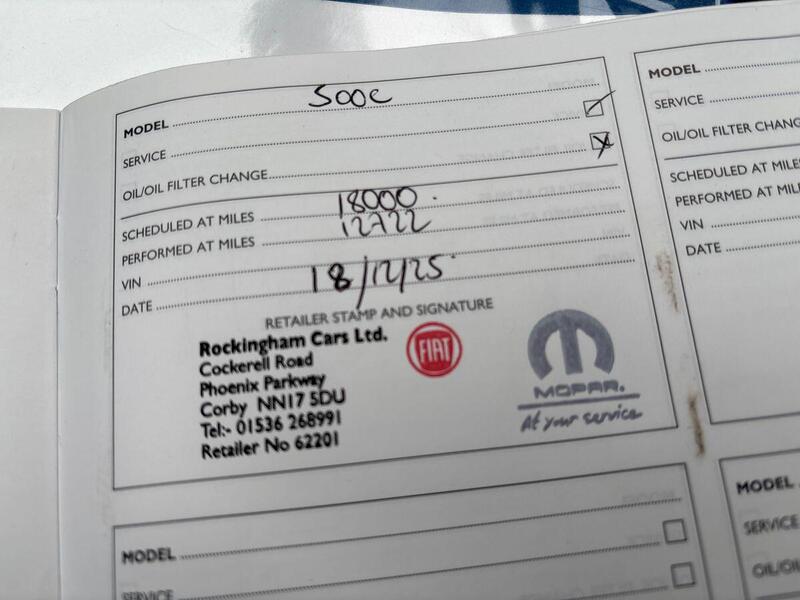 MODEL 500C
SERVICE
OIL/OIL FILTER CHANGE
SCHEDULED AT MILES 18000
PERFORMED AT MILES 12722
VIN
DATE 18/12/25
RETAILER STAMP AND SIGNATURE
Rockingham Cars Ltd.
Cockerell Road
Phoenix Parkway
Corby NN17 5DU
Tel:- 01536 268991
Retailer No 62201
FIAT
MOPAR.
At your service
MODEL
SERVICE
MODEL
SERVICE
OIL/OIL FILTER CHANG
SCHEDULED AT MILES
PERFORMED AT MILES
VIN
DATE
MODEL
SERVICE
OIL/OIL